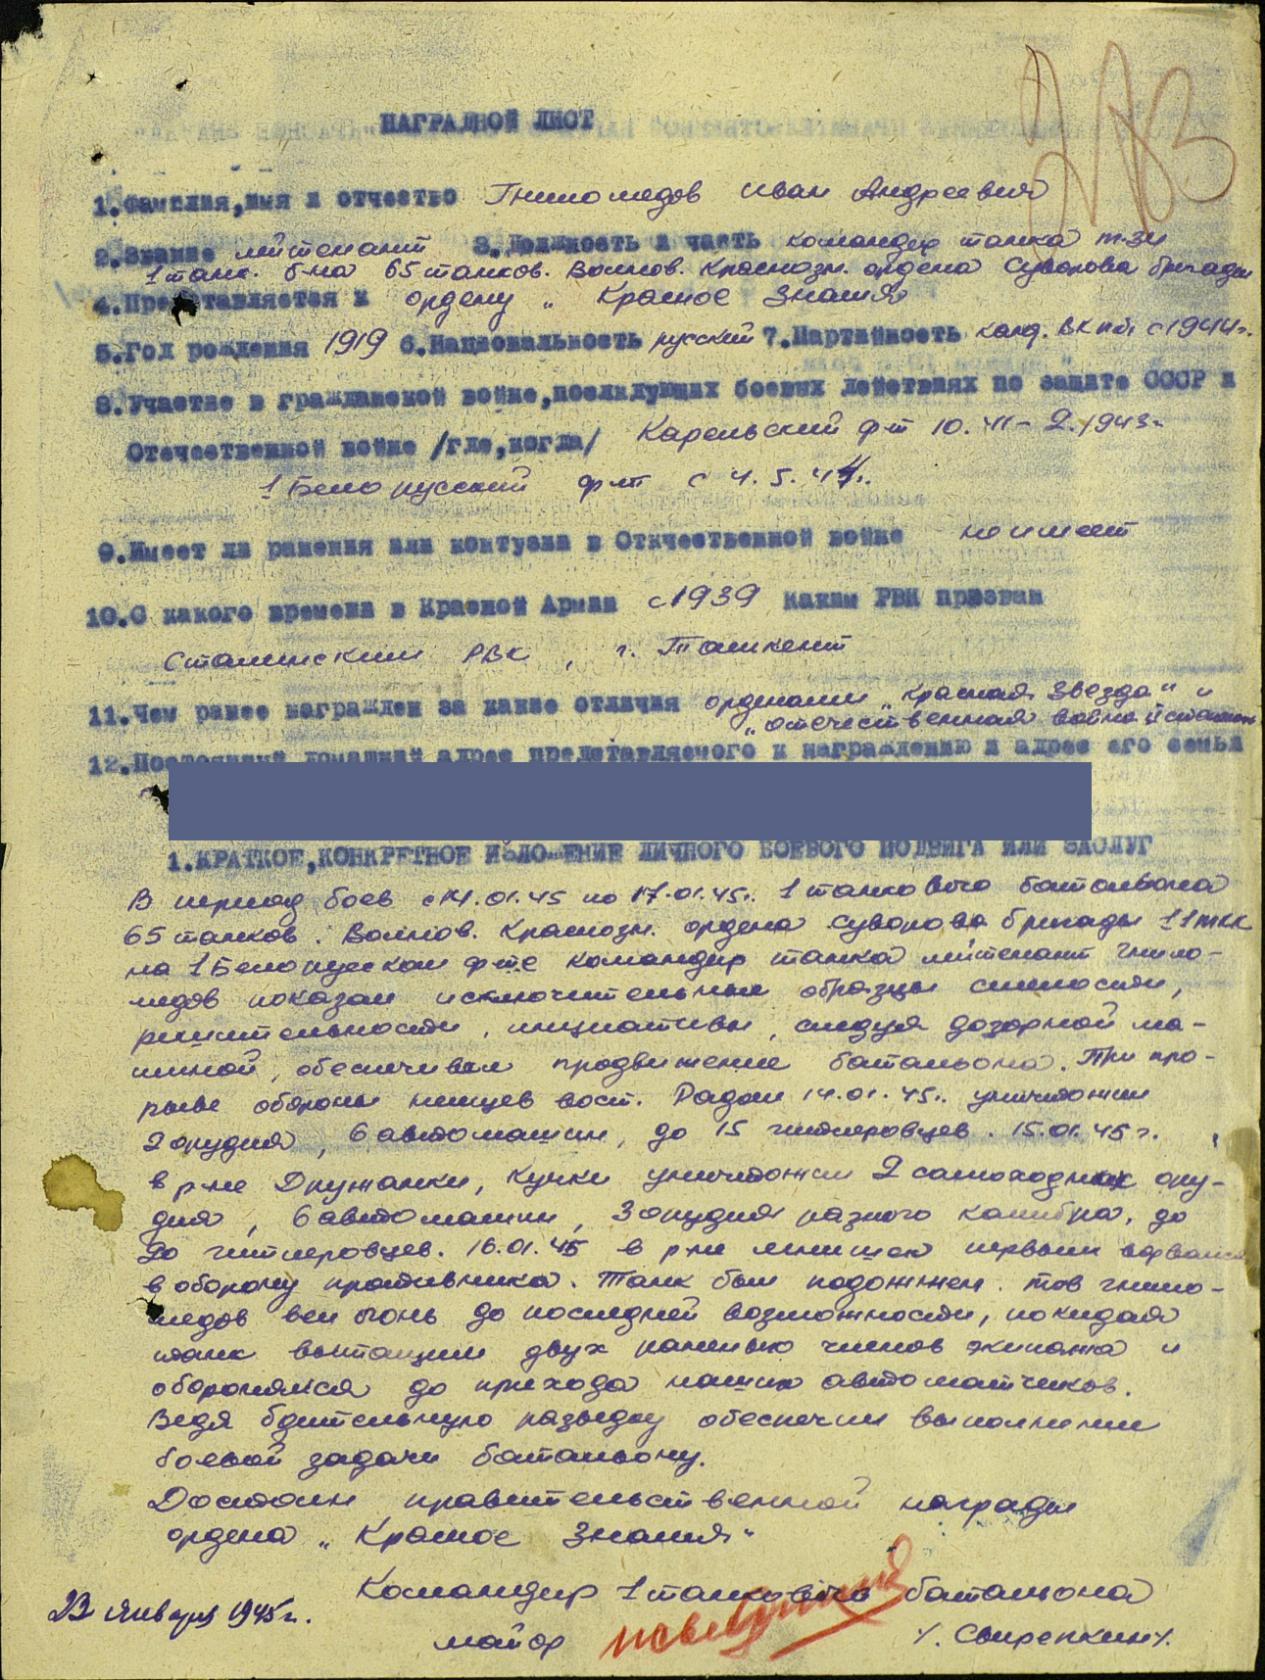 НАГРАДНОЙ ЛИСТ
1.Фамилия,имя и отчество Гниломедов Иван Андреевич
2.Звание лейтенант 3.Должность и часть командир танка т-34
1 танк. б-на 65 танков. Волнов. Краснозн. ордена Суворова бригады
4.Представляется к ордену „Красное Знамя
5.Год рождения 1919 6.Национальность русский 7.Партийность канд. ВКПб с 1944г.
8.Участие в гражданской войне,последующих боевых действиях по защите СССР и
Отечественной войне /где,когда/ Карельский ф-т 10.41-2.1943г.
1 Белорусский ф-т с 4.5.44г.
9.Имеет ли ранения или контузии в Отечественной войне не имеет
10.С какого времени в Красной Армии с 1939 каким РВК призван
Сталинским РВК, г. Ташкент
11.Чем ранее награжден за какие отличия орденами „Красная Звезда" и
„Отечественная война II степени
12.Постоянный домашний адрес представляемого к награждению и адрес его семьи
1.КРАТКОЕ,КОНКРЕТНОЕ ИЗЛОЖЕНИЕ ЛИЧНОГО БОЕВОГО ПОДВИГА ИЛИ ЗАСЛУГ
В период боев с 14.01.45 по 17.01.45г. 1 танкового батальона
65 танков. Волнов. Краснозн. ордена Суворова бригады 11 ткк
на 1 Белорусском ф-те командир танка лейтенант Гнило-
медов показал исключительные образцы смелости,
решительности, инициативы, следуя дозорной ма-
шиной, обеспечивал продвижение батальона. При про-
рыве обороны немцев вост. Радом 14.01.45г. уничтожил
2 орудия, 6 автомашин, до 15 гитлеровцев. 15.01.45г.
в р-не Дружанки, Кучки уничтожил 2 самоходных ору-
дия, 6 автомашин, 3 орудия разного калибра, до
20 гитлеровцев. 16.01.45 в р-не первым ворвался
в оборону противника. Танк был подожжен. Тов Гнило-
медов вел огонь до последней возможности, покидая
танк вытащил двух раненых членов экипажа и
оборонялся до прихода наших автоматчиков.
Ведя бдительную разведку обеспечил выполнение
боевой задачи батальону.
Достоин правительственной награды
ордена „Красное Знамя"
Командир 1 танкового батальона
23 января 1945г.
майор /. Свирепкин/.